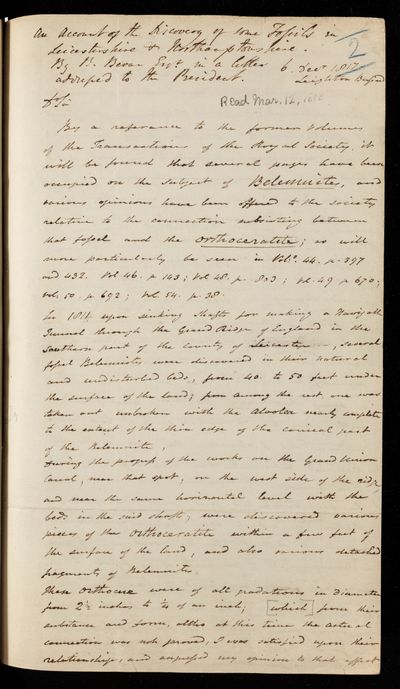 An Account of the Discovery of some Fossils in
Leicestershire & Northamptonshire.
By B. Bevan Esqr. in a letter 6. Decr. 1817
addressed to the President. Leighton Buzzard
2
Dr Sir
Read Mar. 12, 1818
By a reference to the former Volumes
of the Transactions of the Royal Society, it
will be found that several pages have been
occupied on the subject of Belemnites, and
various opinions have been offered to the society
relative to the connection subsisting between
that fossil and the orthoceratite; as will
more particularly be seen in Vol. 44. p. 397
and 432. Vol 46. p 143; Vol 48. p. 803; Vol. 49 p 670;
Vol. 50. p. 692; Vol. 54. p. 38.
In 1811 upon sinking shafts for making a Navigable
Tunnel through the Grand Ridge of England in the
southern part of the County of Leicester, several
fossil Belemnites were discovered in their natural
and undisturbed beds, from 40. to 50 feet under
the surface of the land; from among the rest, one was
taken out unbroken with the Alveolus nearly complete
to the extent of the thin edge of the conical part
of the Belemnite,
During the progress of the works on the Grand Union
Canal, near that spot, on the west side of the ridge
and near the same horizontal level with the
beds in the said shaft, were discovered various
pieces of the Orthoceratite within a few feet of
the surface of the land, and also various detached
fragments of Belemnites.
These orthocera were of all gradations in diameter
from 2½ inches to ¼ of an inch; which from their
substance and form, altho at this time the actual
connection was not proved, I was satisfied upon their
relationship, and expressed my opinion to that effect